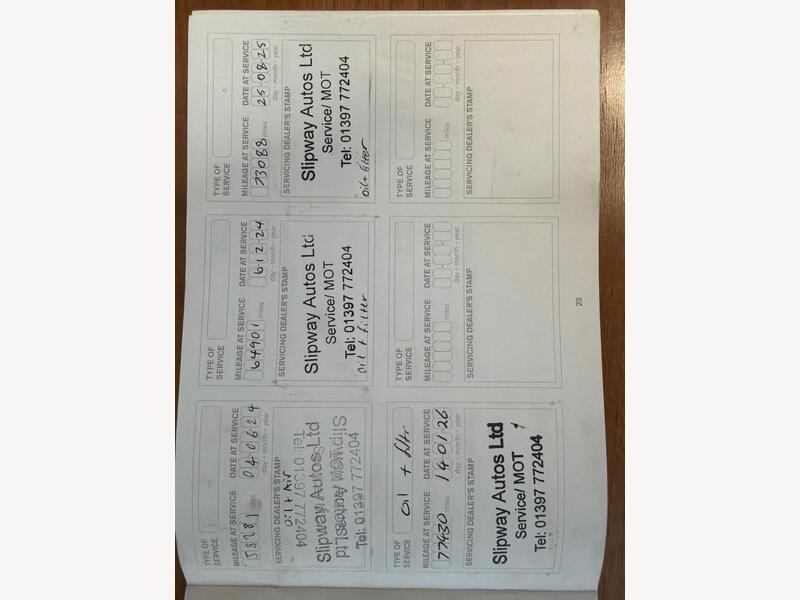 TYPE OF
SERVICE
MILEAGE AT SERVICE
58281 miles
DATE AT SERVICE
04 06 24
day - month - year
SERVICING DEALER'S STAMP
oil + Air
Tel: 01397 772404
Slipway Autos Ltd
Slipway Autos Ltd
Service/ MOT
Tel: 01397 772404
TYPE OF
SERVICE
MILEAGE AT SERVICE
64901 miles
DATE AT SERVICE
6 12 24
day - month - year
SERVICING DEALER'S STAMP
Slipway Autos Ltd
Service/ MOT
Tel: 01397 772404
oil + filter
TYPE OF
SERVICE
MILEAGE AT SERVICE
73088 miles
DATE AT SERVICE
25 08 25
day - month - year
SERVICING DEALER'S STAMP
Slipway Autos Ltd
Service/ MOT
Tel: 01397 772404
oil + filter
TYPE OF
SERVICE
oil + filtr
MILEAGE AT SERVICE
77430 miles
DATE AT SERVICE
14 01 26
day - month - year
SERVICING DEALER'S STAMP
Slipway Autos Ltd
Service/ MOT
Tel: 01397 772404
TYPE OF
SERVICE
MILEAGE AT SERVICE
miles
DATE AT SERVICE
day - month - year
SERVICING DEALER'S STAMP
TYPE OF
SERVICE
MILEAGE AT SERVICE
miles
DATE AT SERVICE
day - month - year
SERVICING DEALER'S STAMP
23